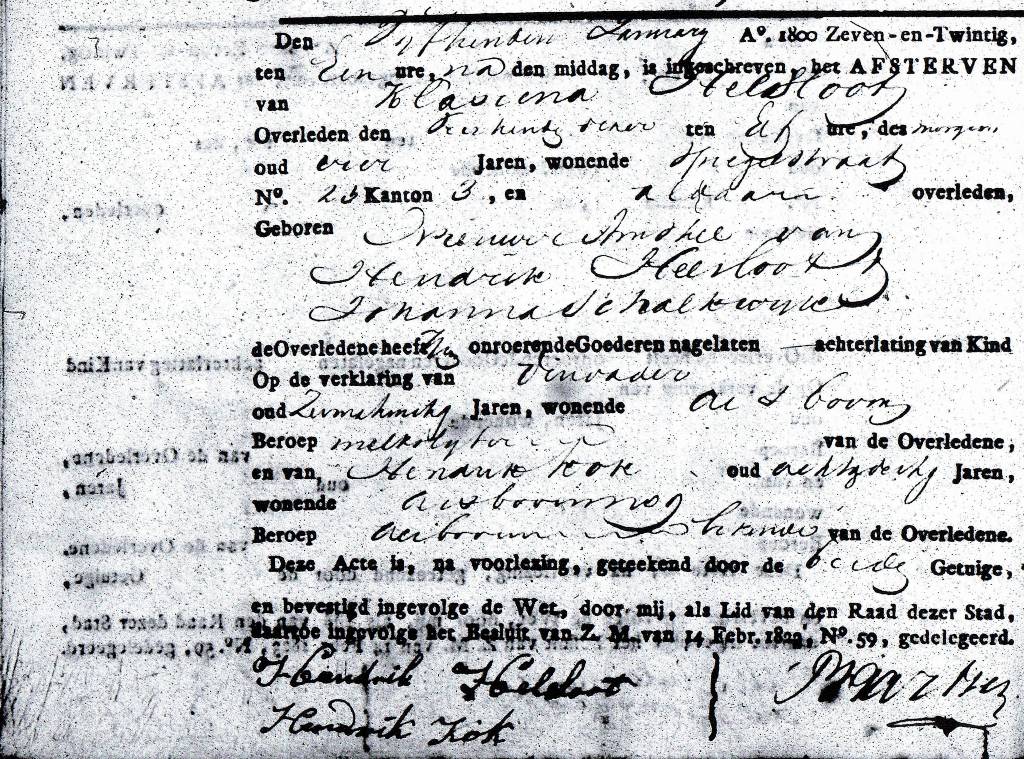 Den Vyfthienden January A°. 1800 Zeven-en-Twintig,
ten Een ure, na den middag, is ingeschreven het AFSTERVEN
van Klasiena Helsloot
Overleden den dezer ten Elf ure, des morgens
oud vier Jaren, wonende Spiegelstraat
N°. 23 Kanton 3, en aldaar overleden,
Geboren Nieuwer Amstel van
Hendrik Heelsloot &
Johanna Schalkwyk
de Overledene heeft onroerende Goederen nagelaten — achterlating van Kind
Op de verklaring van Den vader
oud Jaren, wonende als boven
Beroep van de Overledene,
en van Hendrik Kok oud achtzestig Jaren,
wonende als boven
Beroep van de Overledene.
Deze Acte is, na voorlezing, geteekend door de beide Getuige,
en bevestigd ingevolge de Wet, door mij, als Lid van den Raad dezer Stad,
daartoe ingevolge het Besluit van Z. M. van 14 Febr. N°. 59, gedelegeerd.
Hendrik Helsloot
Hendrik Kok